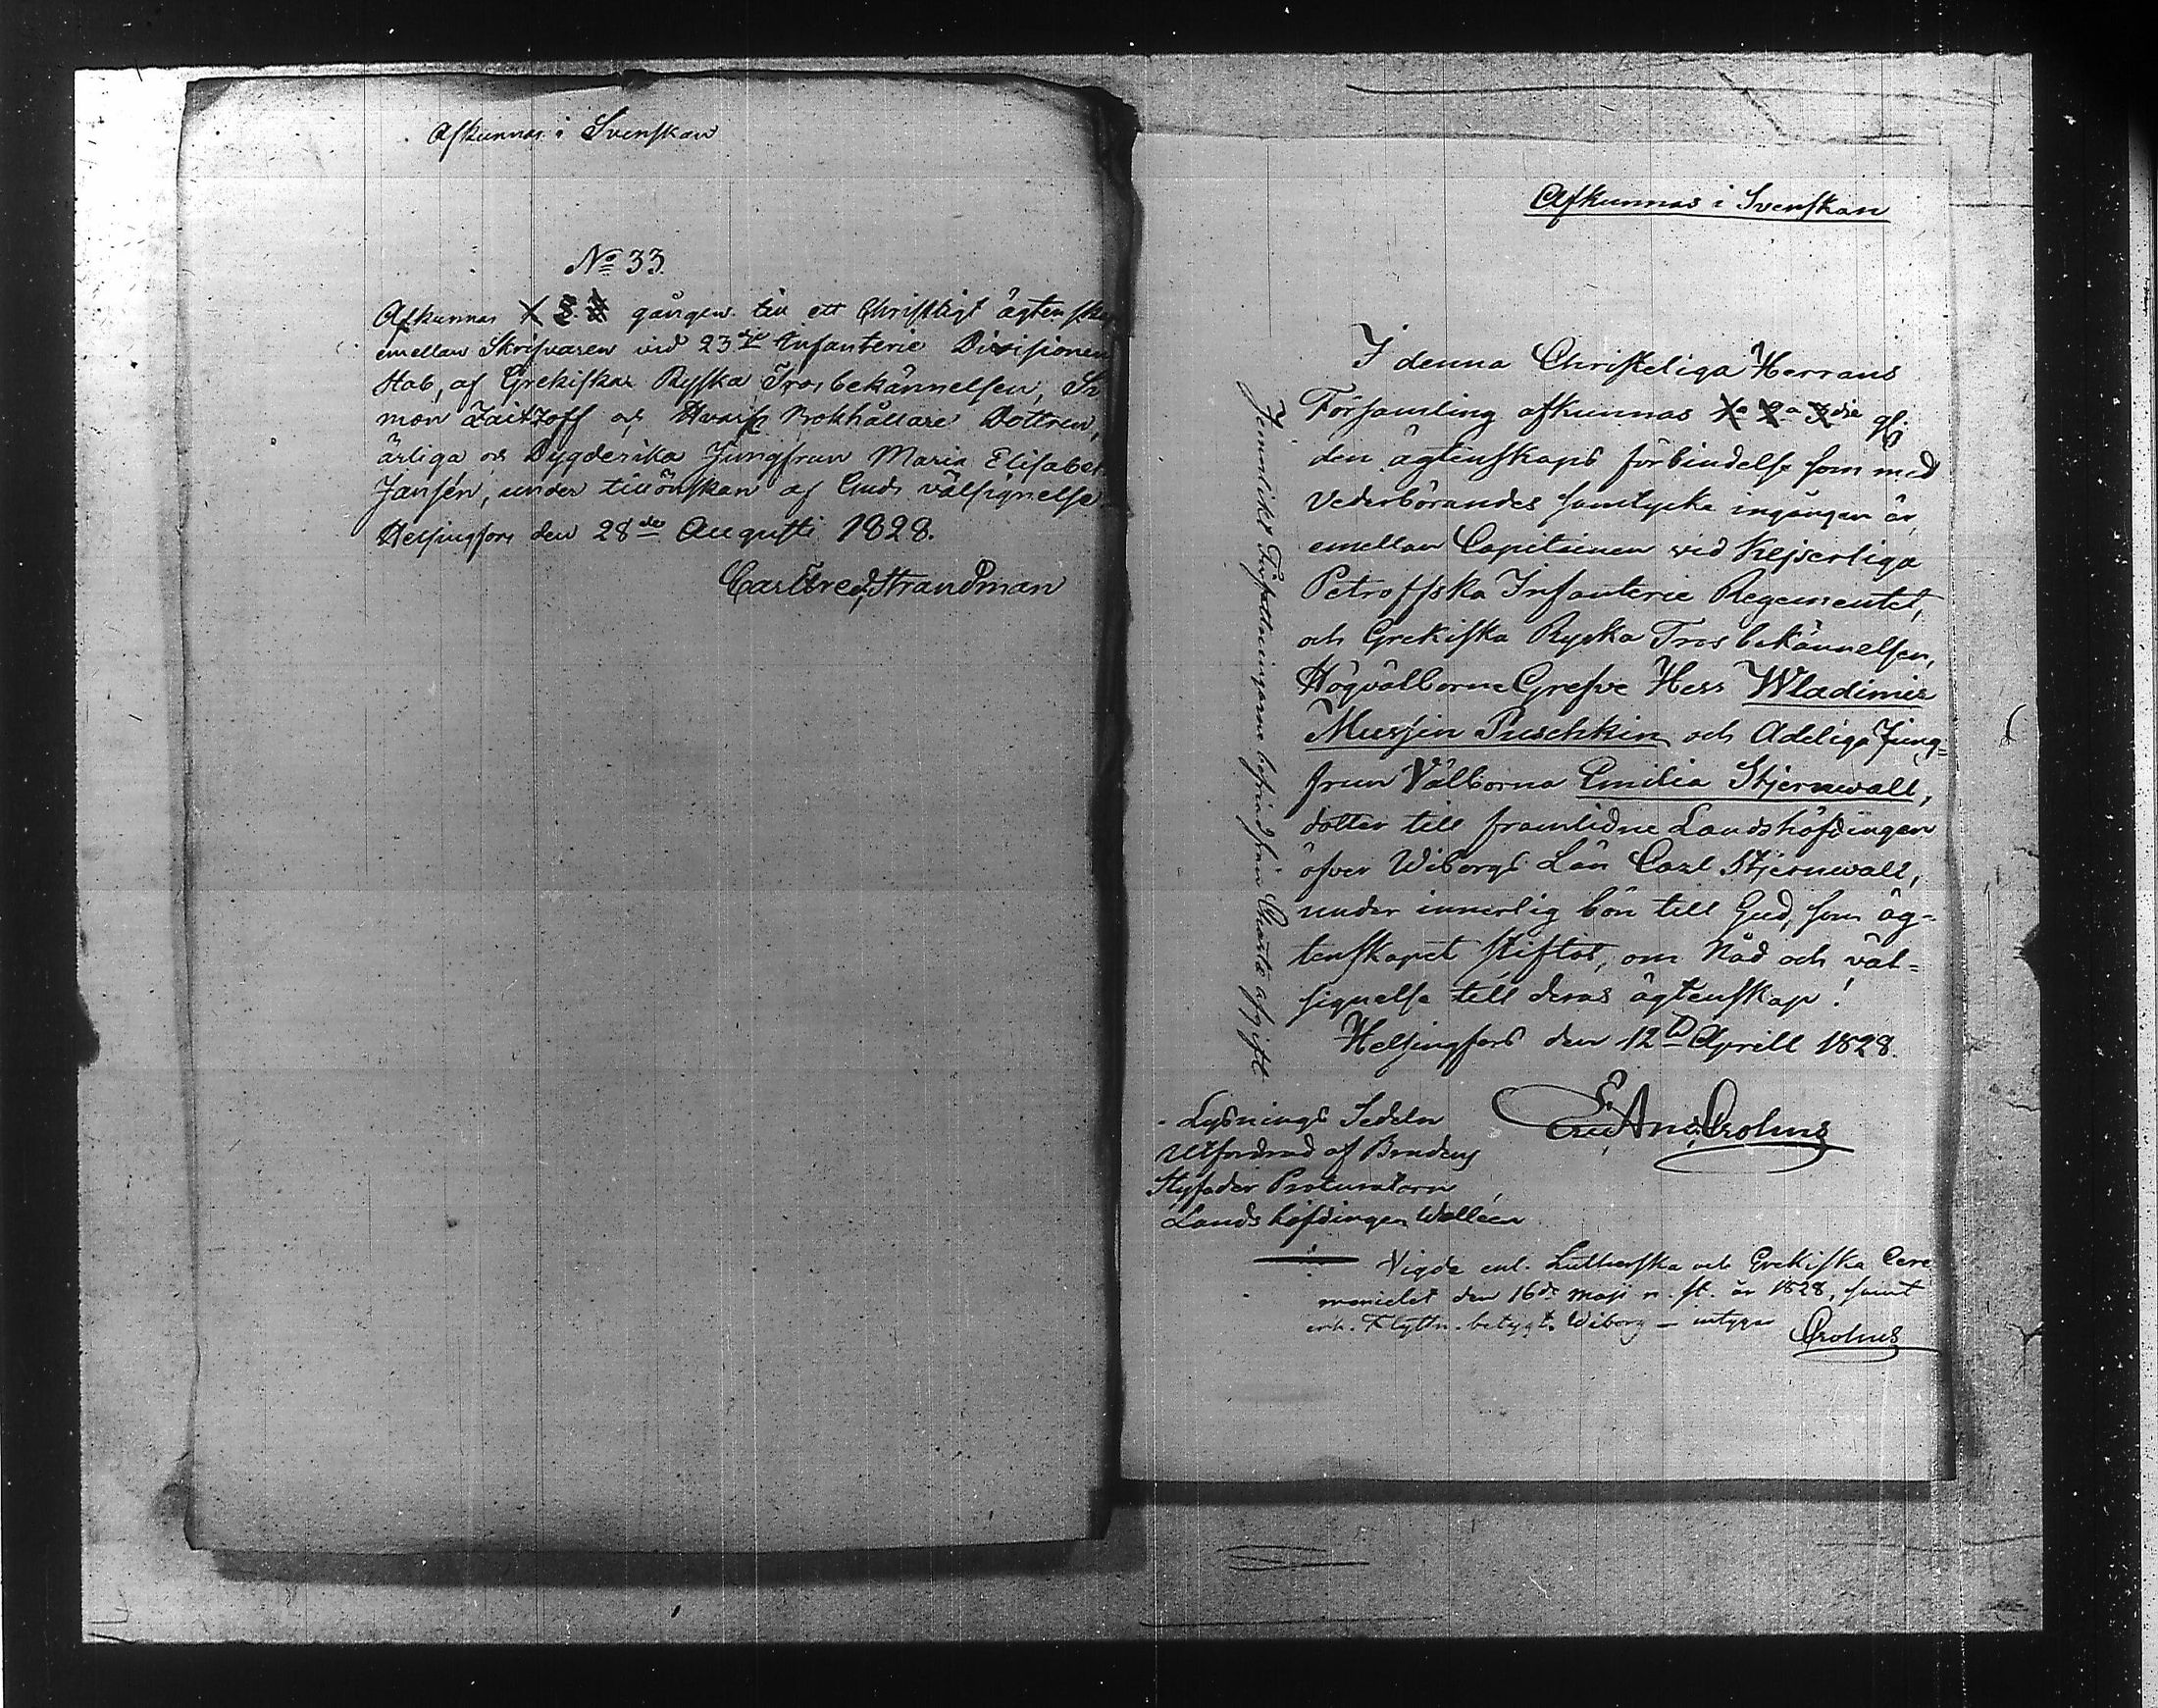 Afkunnas i Svenskan
No 33.
Afkunnas 1 2 3 gången till ett Christligt ägtenska
emellan Skrifvaren vid 23dje Infanterie Divisionens
Stab, af Grekiska Ryska Trosbekännelsen, Si
mon Zaitzoff och Bokhållare Dottren,
ärliga och Dygderika Jungfrun Maria Elisabet
Jansén, under tillönskan af Guds välsignelse.
Helsingfors den 28de Augusti 1828.
Carl Fred. Strandman
Afkunnas i Svenskan
I denna Christeliga Herrans
Församling afkunnas 1a 2a 3die gg
den ägtenskaps förbindelse som med
Vederbörandes samtycke ingången är,
emellan Capitainen vid Kejserliga
Petroffska Infanterie Regementet,
och Grekiska Ryska Trosbekännelsen,
Högvälborne Grefve Herr Wladimir
Mussin Puschkin och Adeliga Jung=
frun Välborna Emilia Stjernwall,
dotter till framlidne Landshöfdingen
öfver Wiborgs Län Carl Stjernwall,
under innerlig bön till Gud, som äg=
tenskapet stiftat, om Nåd och väl=
signelse till deras ägtenskap!
Helsingfors den 12te Aprill 1828.
Crohns
Jemnlikt Författningarne befriad från Charta afgift
Lysnings Sedeln
Utfordrad af Brudens
Styfader Procuratorn
Landshöfdingen Walléen
Vigde enl. Lutherska och Grekiska Cere
moniclet den 16de Maji n. st. år 1828, samt
erh. Flyttn. betygt. Wiborg — intygar
Crohns